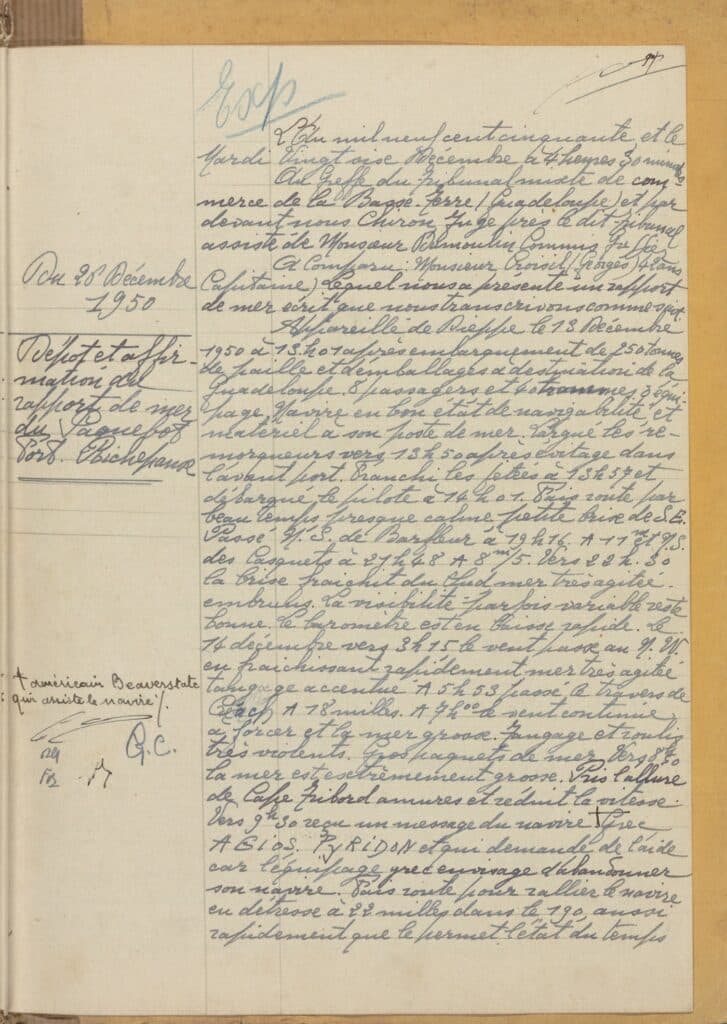 Exp
L'An mil neuf cent cinquante et le
Mardi Vingt sixe Décembre à 4 heures 30 minutes
Au Greffe du Tribunal mixte de com
merce de la Basse-Terre (Guadeloupe) et par
devant nous Chiron Juge près le dit Tribunal
assisté de Monsieur Commis
A Comparu : Monsieur Croisil (Georges) 42 ans
Capitaine) lequel nous a présenté un rapport
de mer écrit que nous transcrivons comme suit.
Appareillé de Dieppe le 13 Décembre
1950 à 13h01 après embarquement de 250 tonnes
de paille et d'emballages à destination de la
Guadeloupe. 8 passagers et hommes d'équi
page. Navire en bon état de navigabilité et
matériel à son poste de mer. Largué les re-
morqueurs vers 13h50 après évitage dans
l'avant port. Franchi les jetées à 13h57 et
débarqué le pilote à 14h01. Fais route par
beau temps presque calme petite brise de S.E.
Passé N.S. de Barfleur à 19h16 A 11m et N.S.
des Casquets à 21h48 A 8m/5. Vers 22h.30
la brise fraichit du Sud mer très agitée.
embruns. La visibilité parfois variable reste
bonne. Le baromètre est en baisse rapide. Le
14 décembre vers 3h15 le vent passe au N.W.
en fraichissant rapidement mer très agitée
tangage accentué A 5h53 passé le travers de
Créach A 18 milles. A 7h00 le vent continue
à forcer et la mer grosse. Tangage et roulis
très violents. Gros paquets de mer. Vers 8h30
la mer est extrêmement grosse. Pris l'allure
de Cape Tribord amures et réduit la vitesse.
Vers 9h30 reçu un message du navire + Grec
AGIOS. PYRIDON et qui demande de l'aide
car l'équipage grec envisage d'abandonner
son navire. Fais route pour rallier le navire
en détresse à 22 milles dans le 190, aussi
rapidement que le permet l'état du temps
Du 26 Décembre
1950
Dépôt et affir-
mation du
rapport de mer
du Paquebot
Fort. Richepanse
+ américain Beaverstate
qui assiste le navire /.
G.C.